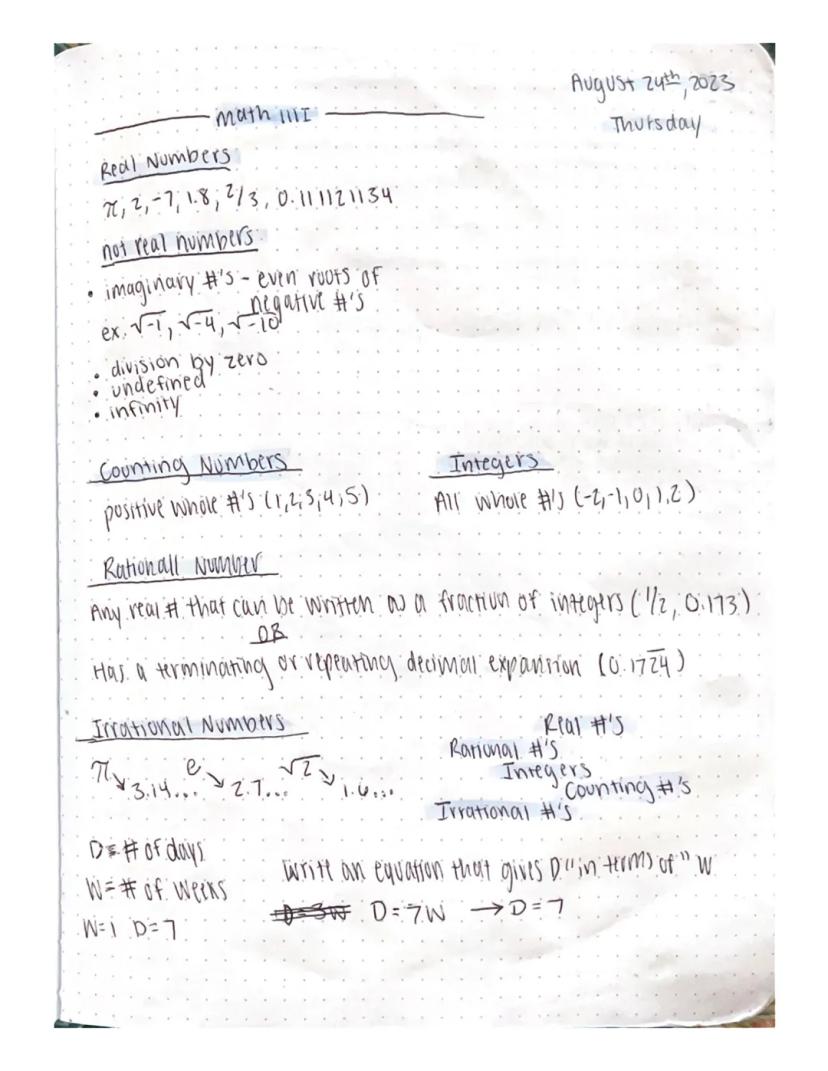 August 24th, 2023
Math III
Thursday
Real Numbers
π, 2, -7, 1.8, 2/3, 0.111121134
not real numbers
• imaginary #'s - even roots of
negative #'s
ex. √-1, √-4, √-10
• division by zero
• undefined
• infinity
Counting Numbers
positive whole #'s (1,2,3,4,5)
Integers
All whole #'s (-2,-1,0,1,2)
Rationall Number
Any real # that can be written as a fraction of integers (1/2, 0.173)
OR
Has a terminating or repeating decimal expansion (0.17\overline{24})
Irrational Numbers
π ↘ 3.14... e ↘ 2.7... √2 ↘ 1.6...
Real #'s
Rational #'s
Integers
Counting #'s
Irrational #'s
D = # of days
W = # of weeks
W=1 D=7
Write an equation that gives D "in terms of" W
D=3W D=7W → D=7